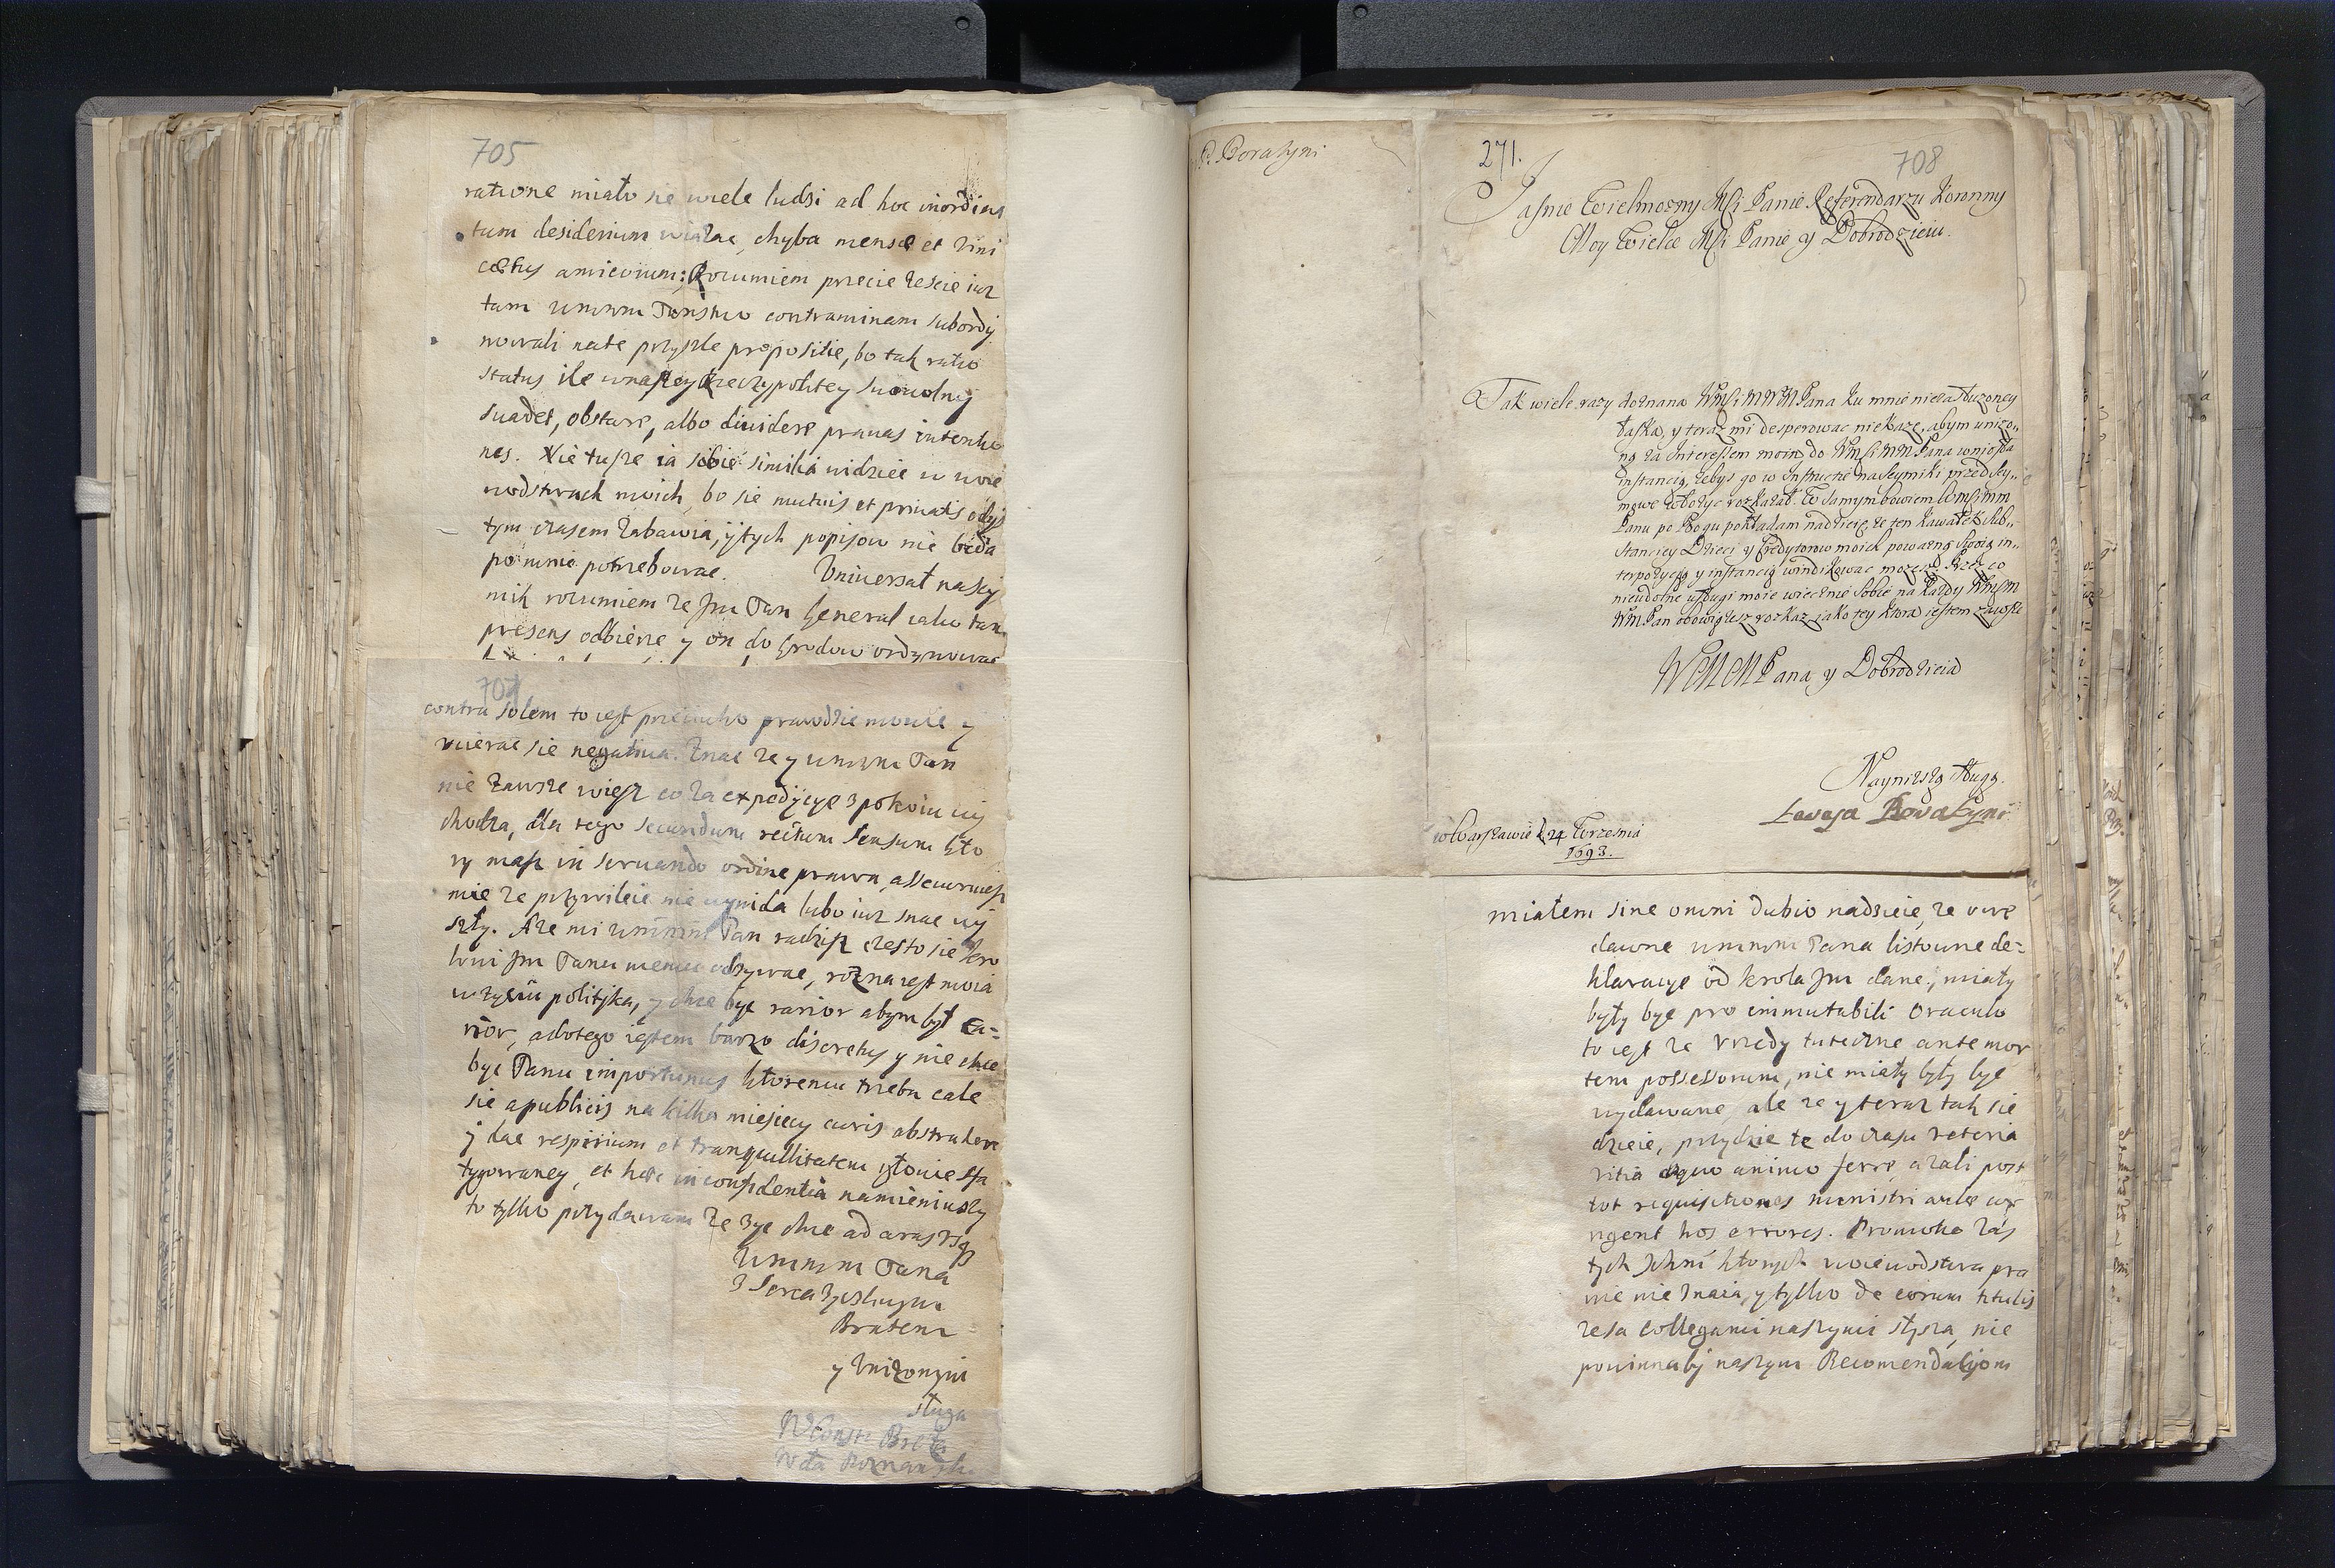 705
ratione miało się wiele ludzi ad hoc inordina
tum desiderium wiązac, chyba mensæ et vini
cœtus amicorum: Rozumiem przecie żescie iuz
tam wmmm Państwo contraminam subordy
nowali nate przyszłe propositie, bo tak ratio
status ile wnaszey Rzeczypolitey swowolny
suadet, obstare, albo dividere pravas intentio
nes. Nie tusze ia sobie similia widziec w woie
wodstwach moich, bo sie mutuis et privatis
tym czasem zabawia, ytych popisow nie beda
po mnie potrzebowac. Vniuersał na sey
mik rozumiem ze Jm Pan General iako tam
presens odbierze y on do Grodow ordynowac
707
contra solem to iest przeciwko prawdzie mowie y
wierac sie negatiua. Znac ze y wmmm Pan
nie zawsze wiesz co za expedycye z pokoiu wy
chodza, dla tego secundum rectum sensum kto
ry masz in seruando ordine prawa, assecuruiesz
mie ze przywileie nie wynida lubo iuz snac wy
szły. Aze mi wmmm Pan radzisz czesto sie kro
lowi Jm Panu memu odzywac, rozna iest moia
w zyciu polityka, y chce byc rarior abym był ca=
rior, adotego iestem barzo discretus y nie chce
byc Panu importunus ktoremu trzeba cale
sie apublicis na kilka miesiecy curis abstrahere
y dac respirium et tranquillitatem głowie sfa
tygowaney, et hæc in confidentia namieniwszy
to tylko przydawam ze zyc chce ad aras vsq
Wmmm Pana
z serca zyczliwym
Bratem
y Vnizonym
sługa
Wda Poznanski
P. Boratyni
271.
708
Jasnie Wielmozny Msci Panie Referendarzu Koronny
Moy Wielce Msci Panie y Dobrodzieiu.
Tak wiele razy doznana WMsci MWMPana ku mnie niezasłuzoney
łaska, y teraz mi desperowac niekaze, abym unizo„
ną za Interessem moim do WMsci MM Pana wniosła
instancią, zebys go w Instructie na Seymiki przedsey„
mowe włozyc rozkazał. W samym bowiem Wmsci mm
Panu po Bogu pokładam nadzieię, ze ten kawałek sub„
stanciey Dzieci y Kredytorow moich powazną swoią in„
terpozycyą y instancią windikowac mozesz. Przez co
nieudolne usługi moie wiecznie sobie na kazdy WMsM
WM Pan obowiązesz rozkaz, iako tey ktora iestem zawsze
WMMMPana y Dobrodzieia
Nayniższą sługą.
Boratyni
w Warszawie 24 Wrzesnia
1693.
miałem sine omni dubio nadzieie, ze owe
dawne wmmm Pana listowne de=
klaracye od krola Jm dane, miały
były byc pro immutabili oraculo
to iest ze vrzedy tuteczne ante mor
tem possessorum, nie miały były byc
wydawane, ale ze y teraz tak sie
dzieie, przydzie te do czasu
vitia æquo animo ferre, azali post
tot requisitiones ministri aulæ cor
rigent hos errores. Promotia zas
tych Ichm ktorych woiewodstwa pra
wie nie znaia, y tylko de eorum titulis
ze sa Collegami naszymi słysza, nie
powinnaby naszym Recomendatiom